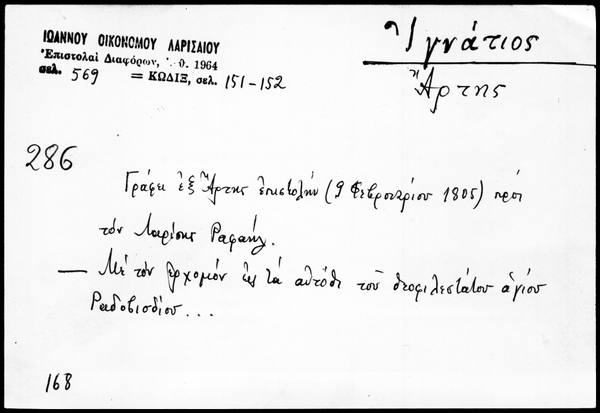 ΙΩΑΝΝΟΥ ΟΙΚΟΝΟΜΟΥ ΛΑΡΙΣΑΙΟΥ
Ἐπιστολαὶ Διαφόρων, 1964
σελ. 569 = ΚΩΔΙΞ, σελ. 151-152
Ἰγνάτιος
Ἄρτης
286
Γράφει ἐξ Ἄρτης ἐπιστολήν (9 Φεβρουαρίου 1805) πρός
τόν Λαρίσης Ραφαήλ.
— Μέ τόν ἐρχομόν εἰς τά αὐτόθι τοῦ θεοφιλεστάτου ἁγίου
Ραδοβισδίου...
168